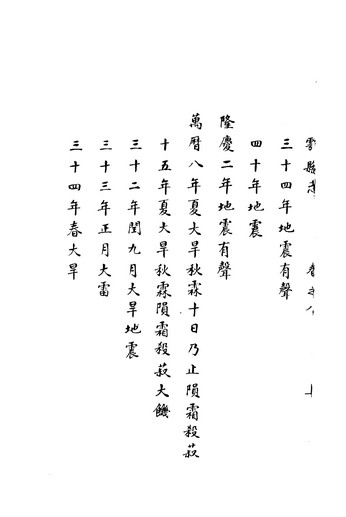 縣志
三十四年地震有聲
四十年地震
隆慶二年地震有聲
萬曆八年夏大旱秋霖十日乃止隕霜殺菽
十五年夏大旱秋霖隕霜殺菽大饑
三十二年閏九月大旱地震
三十三年正月大雷
三十四年春大旱